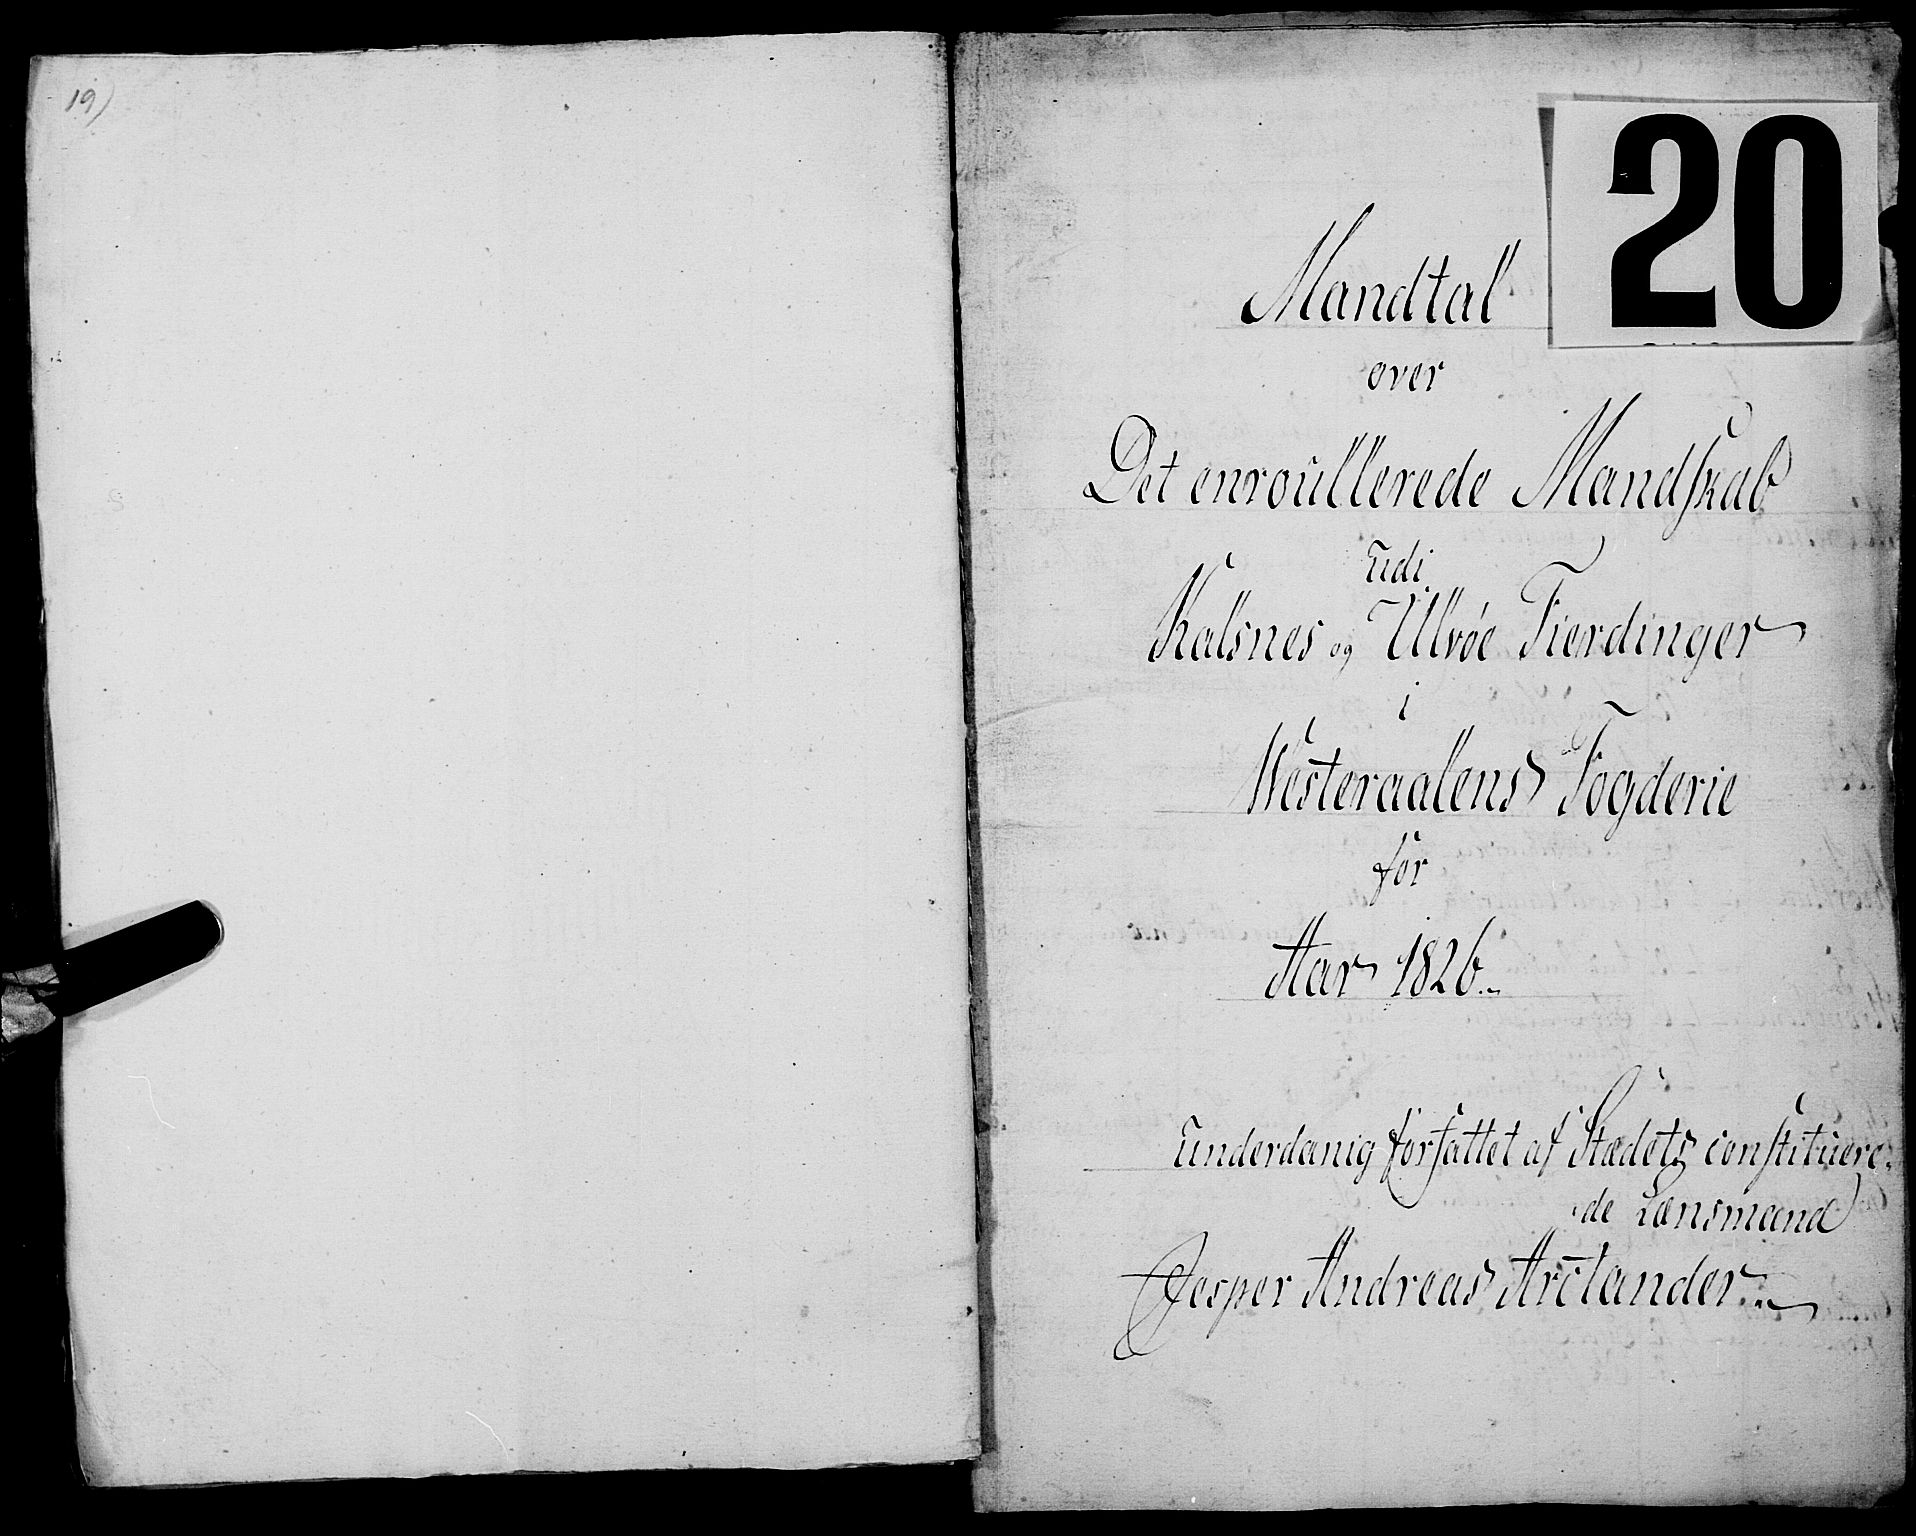 19)
20
Mandtal
over
Det enroullerede Mandskab
udi
Kalsnes og Ulvøe Fierdinger
i
Westeraalens Fogderie
for
Aar 1826.
underdanig forfattet af Stædets constituere-
de Lænsmand
Jesper Andreas Arctander